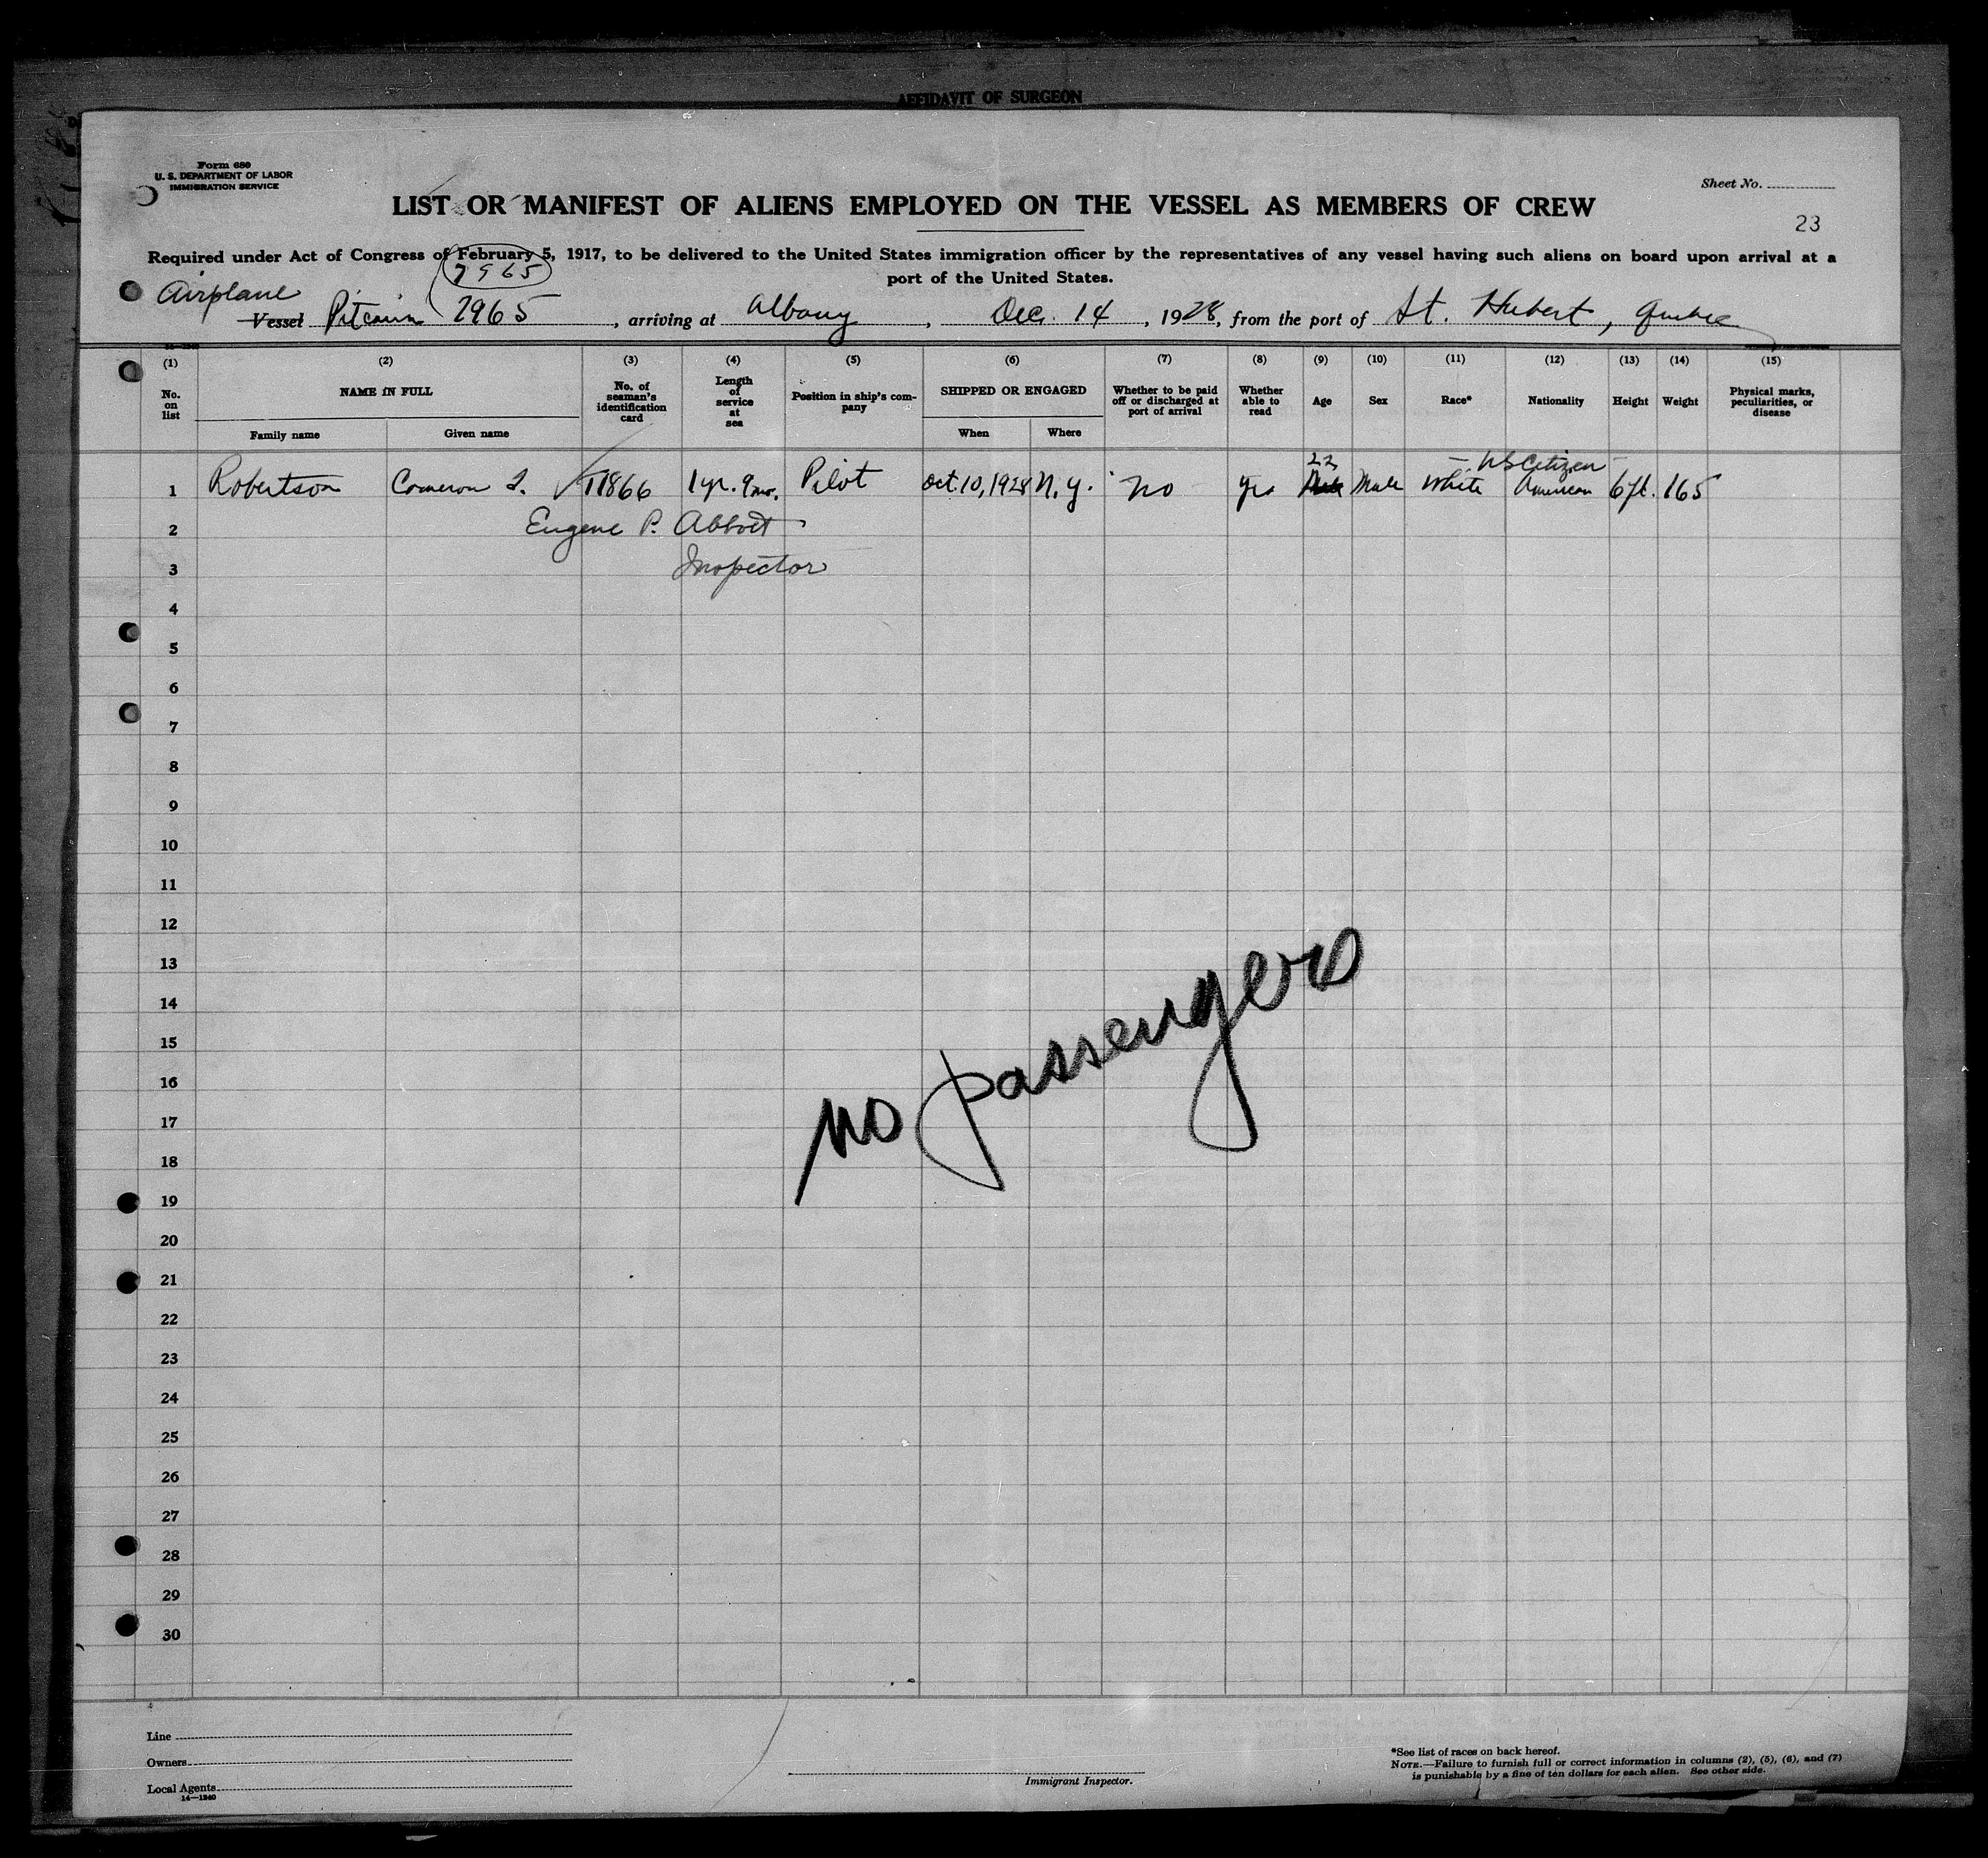 AFFIDAVIT OF SURGEON
Form 680
U. S. DEPARTMENT OF LABOR
IMMIGRATION SERVICE
Sheet No.
LIST OR MANIFEST OF ALIENS EMPLOYED ON THE VESSEL AS MEMBERS OF CREW
23
Required under Act of Congress of February 5, 1917, to be delivered to the United States immigration officer by the representatives of any vessel having such aliens on board upon arrival at a
port of the United States.
7965
Airplane
Vessel Pitcairn 7965, arriving at Albany, Dec. 14, 1928, from the port of St. Hubert, Quebec
(1) (2) (3) (4) (5) (6) (7) (8) (9) (10) (11) (12) (13) (14) (15)
No. on list
NAME IN FULL
Family name
Given name
No. of seaman's identification card
Length of service at sea
Position in ship's company
SHIPPED OR ENGAGED
When
Where
Whether to be paid off or discharged at port of arrival
Whether able to read
Age
Sex
Race*
Nationality
Height
Weight
Physical marks, peculiarities, or disease
22
— US Citizen —
1 Robertson Cameron T1866 1 yr. 9 mo. Pilot Oct. 10, 1928 N.Y. No Yes Male White American 6 ft. 165
2 Eugene P. Abbott
3 Inspector
4
5
6
7
8
9
10
11
12
13
14
15
16
17
18
19
20
21
22
23
24
25
26
27
28
29
30
no passengers
Line
Owners
Local Agents
14—1240
Immigrant Inspector.
*See list of races on back hereof.
NOTE.—Failure to furnish full or correct information in columns (2), (5), (6), and (7)
is punishable by a fine of ten dollars for each alien. See other side.